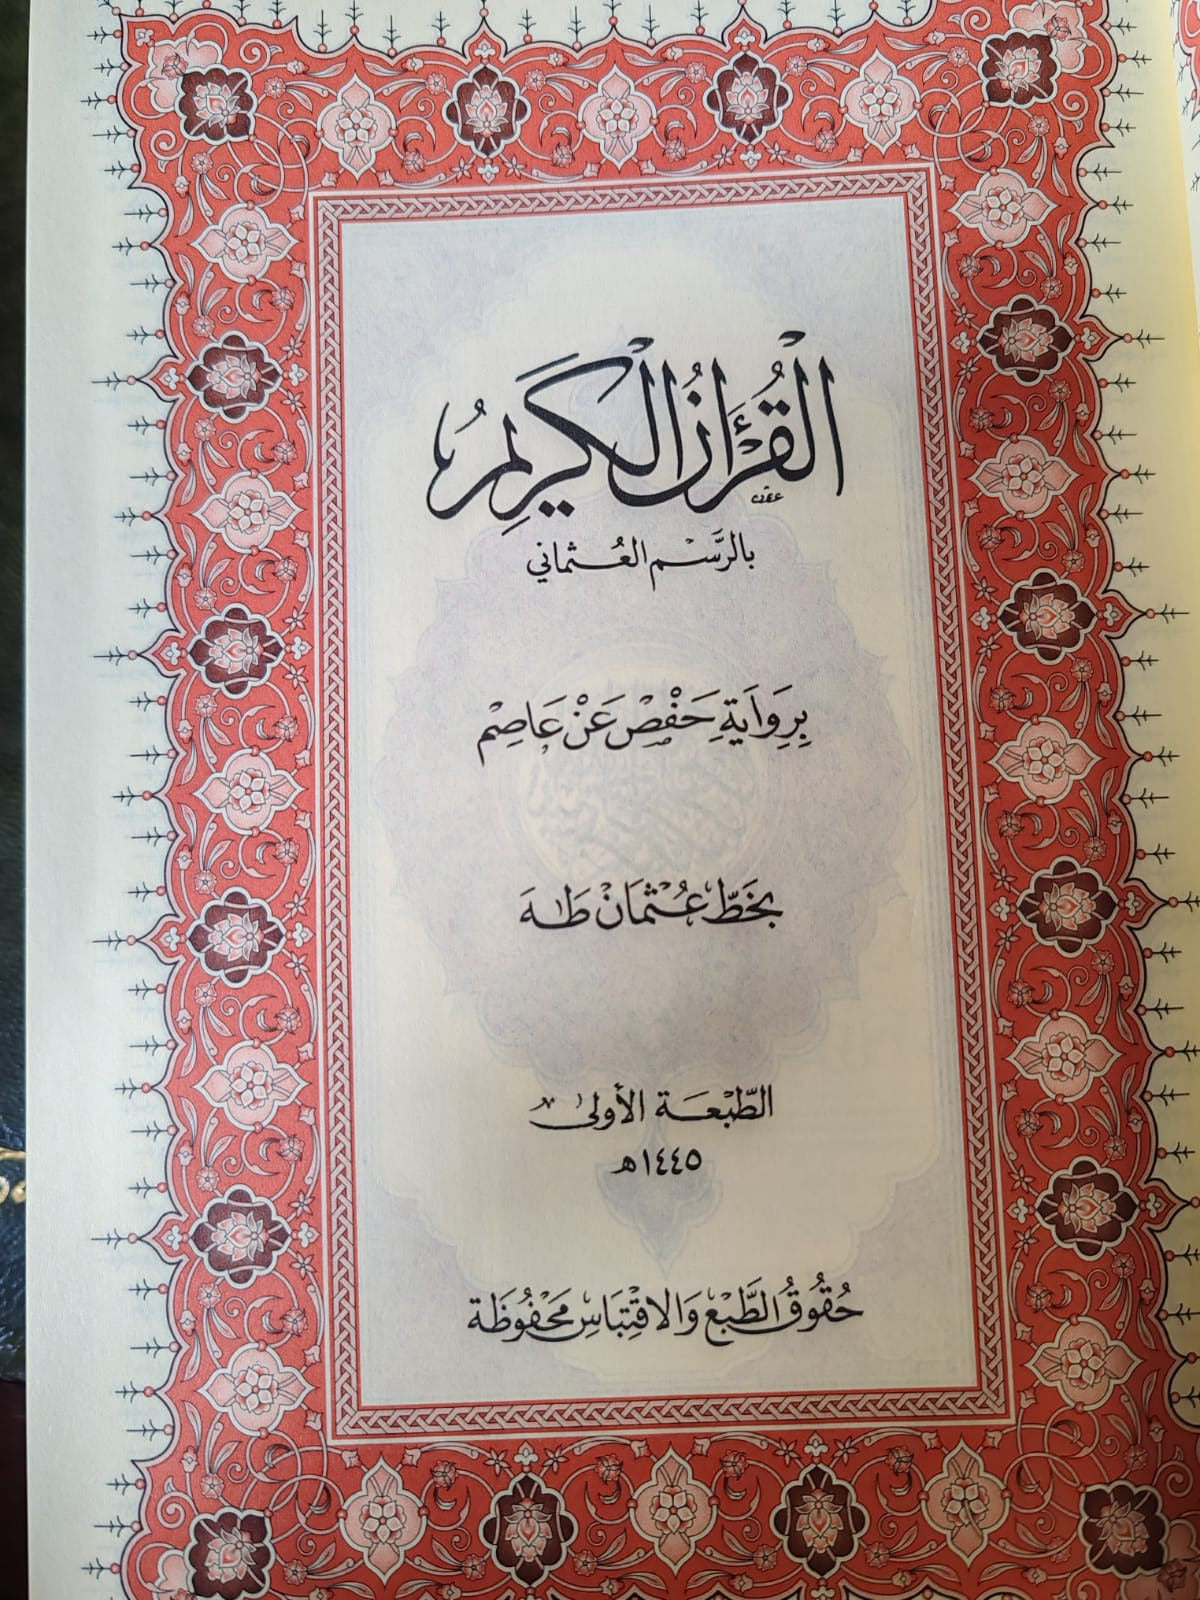 الْقُرْءَانُ الْكَرِيمُ
بالرَّسم العُثماني
بِرِوَايَةِ حَفْصٍ عَنْ عَاصِمٍ
بخَطّ عُثْمَان طَٰهَ
الطّبْعَة الأولى
١٤٤٥هـ
حُقُوقُ الطَّبْعِ وَالاقْتِبَاسِ مَحْفُوظَة